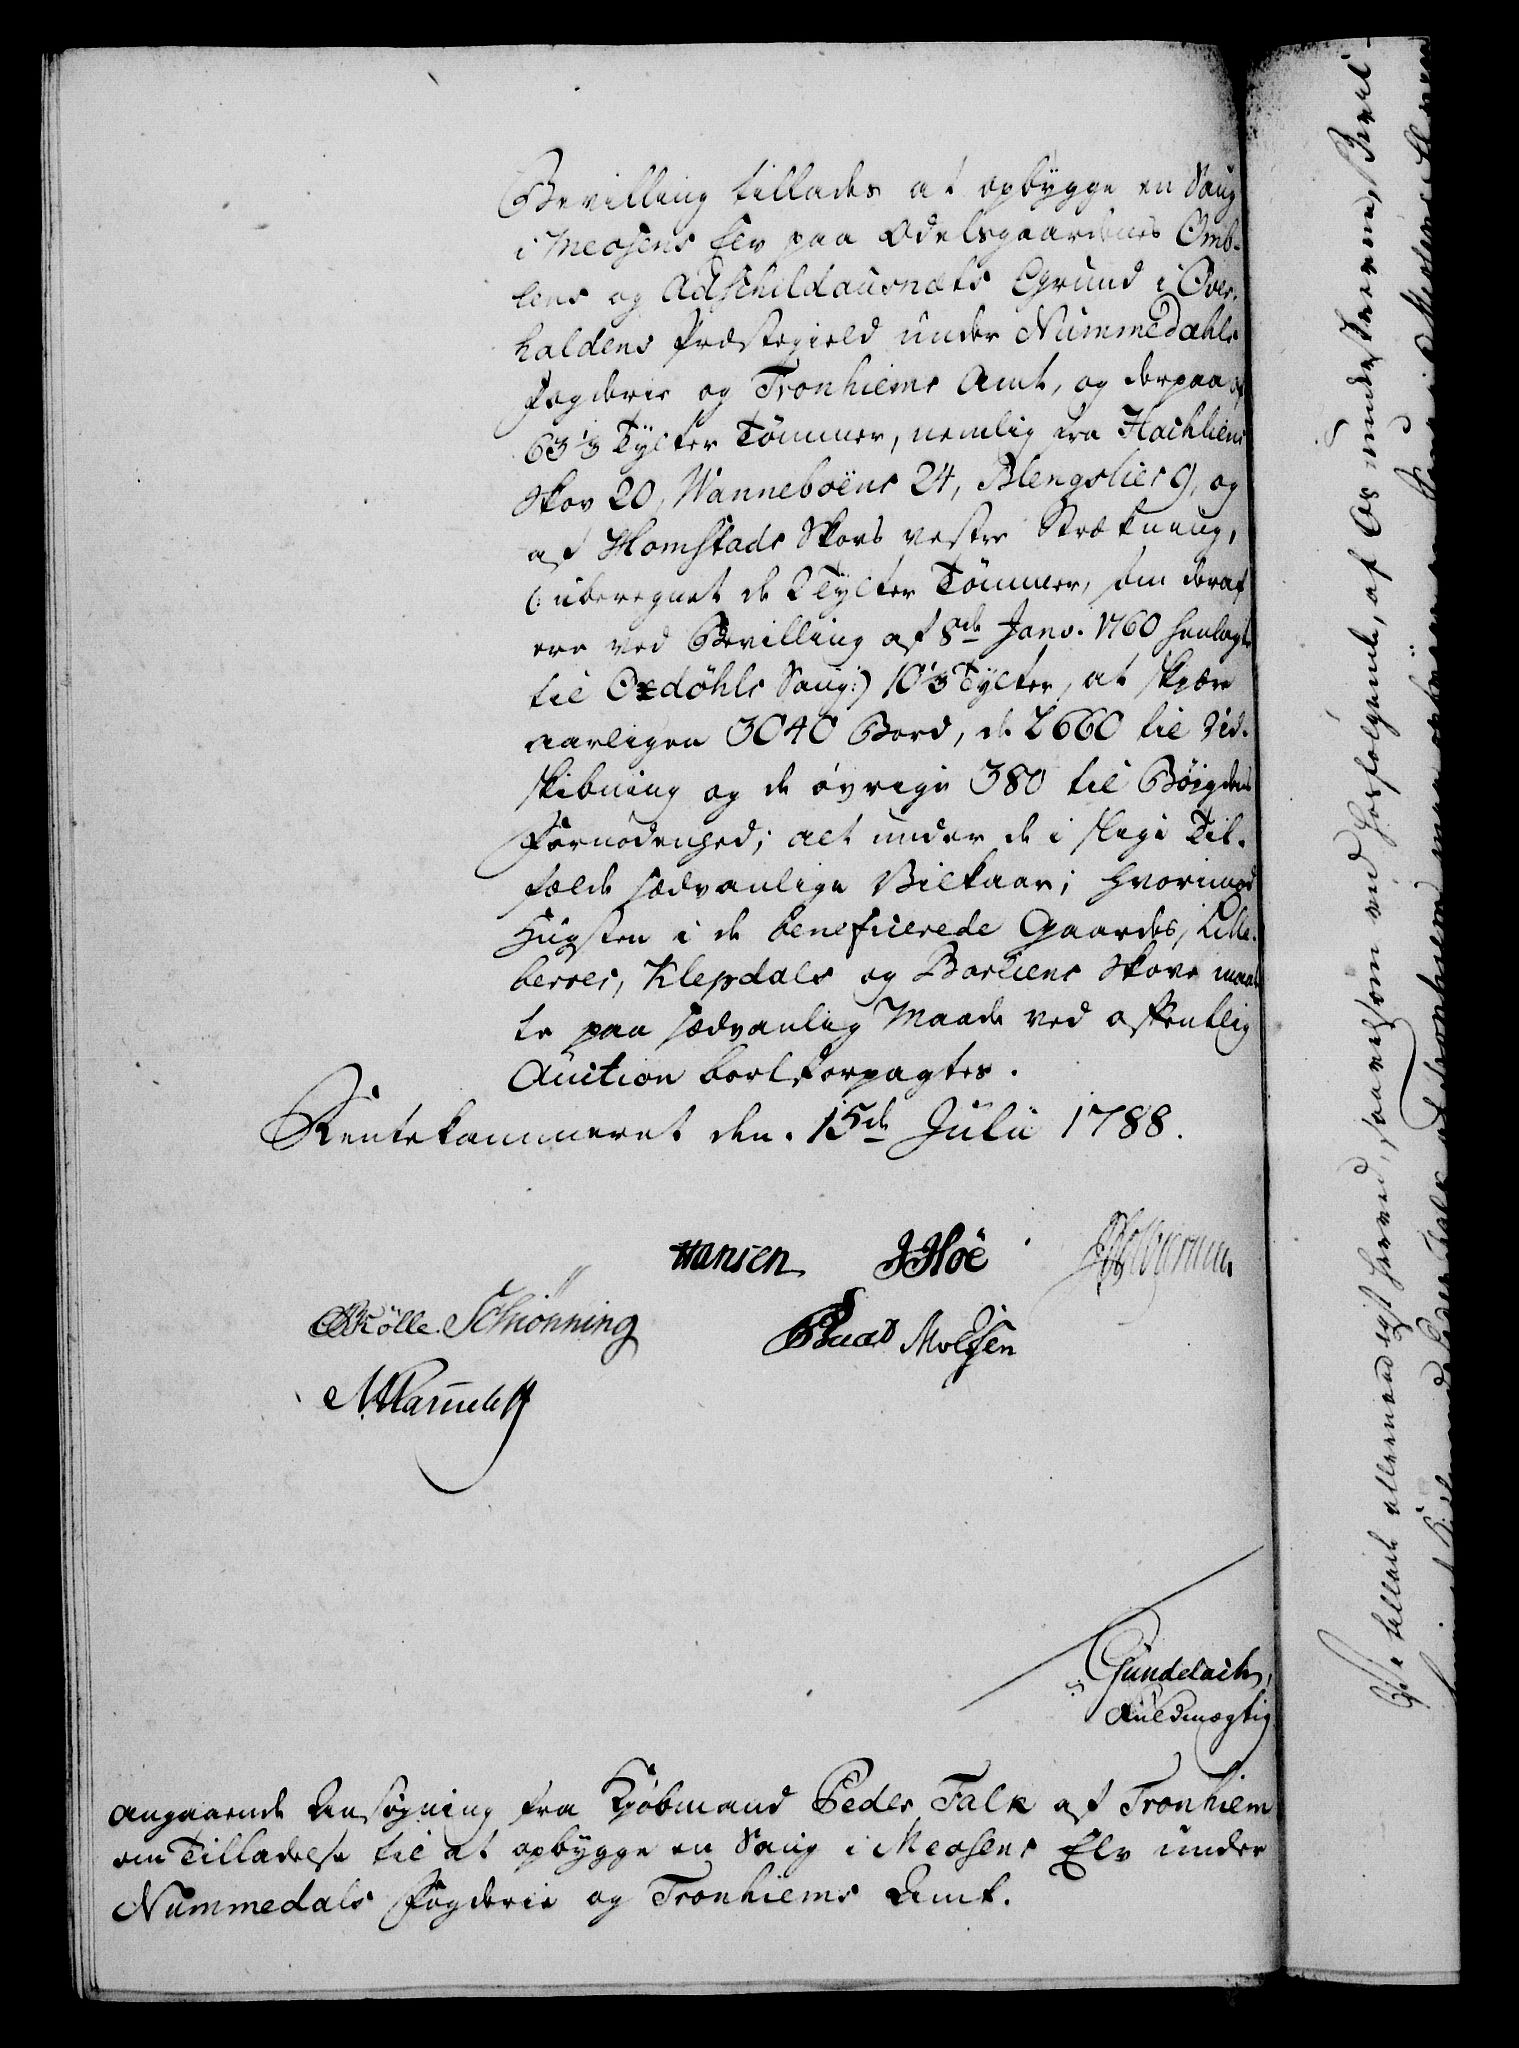 Bevilling tillades at opbygge en Saug
i Meosens Elv paa Odelsgaardenes Omb-
lens og Adschildausnæts Grund i Over-
haldens Præstegield under Nummedahls
Fogderie og Tronhiems Amt, og derpaa af
63 1/3 Tylter Tømmer, nemlig fra Hachliens
Skov 20, Wanneboens 24, Blengslies 9, og
af Homstads Skovs vestre Strækning,
(: uberegnet de 2 Tylter Tømmer, som deraf
ere ved Bevilling af 8de Janv. 1760 henlagte
til Oxdøhls Saug :) 10 1/3 Tylter, at skjære
aarligen 3040 Bord, de 2660 til Ud-
skibning og de øvrige 380 til Bøigdens
Fornødenhed; alt under de i slige Til-
fælde sædvanlige Vilkaar; hvorimod
Hugsten i de beneficerede Gaardes, Lille-
berres, Klepdals og Borliens Skove maat-
te paa sædvanlig Maade ved offentlig
Auction bortforpagtes.
Rentekammeret den. 15de Julii 1788.
Hansen JHoë
Schiønning Moldsen
Gundelach,
Fuldmægtig
angaaende Ansøgning fra Kjøbmand Peder Falk af Tronhiem
om Tilladelse til at opbygge en Saug i Meosens Elv under
Nummedals Fogderie og Tronhiems Amt.
Vi tillade allernaadigst herved, saavelsom ved hosfølgende, af Os underskrevne, Bevil-